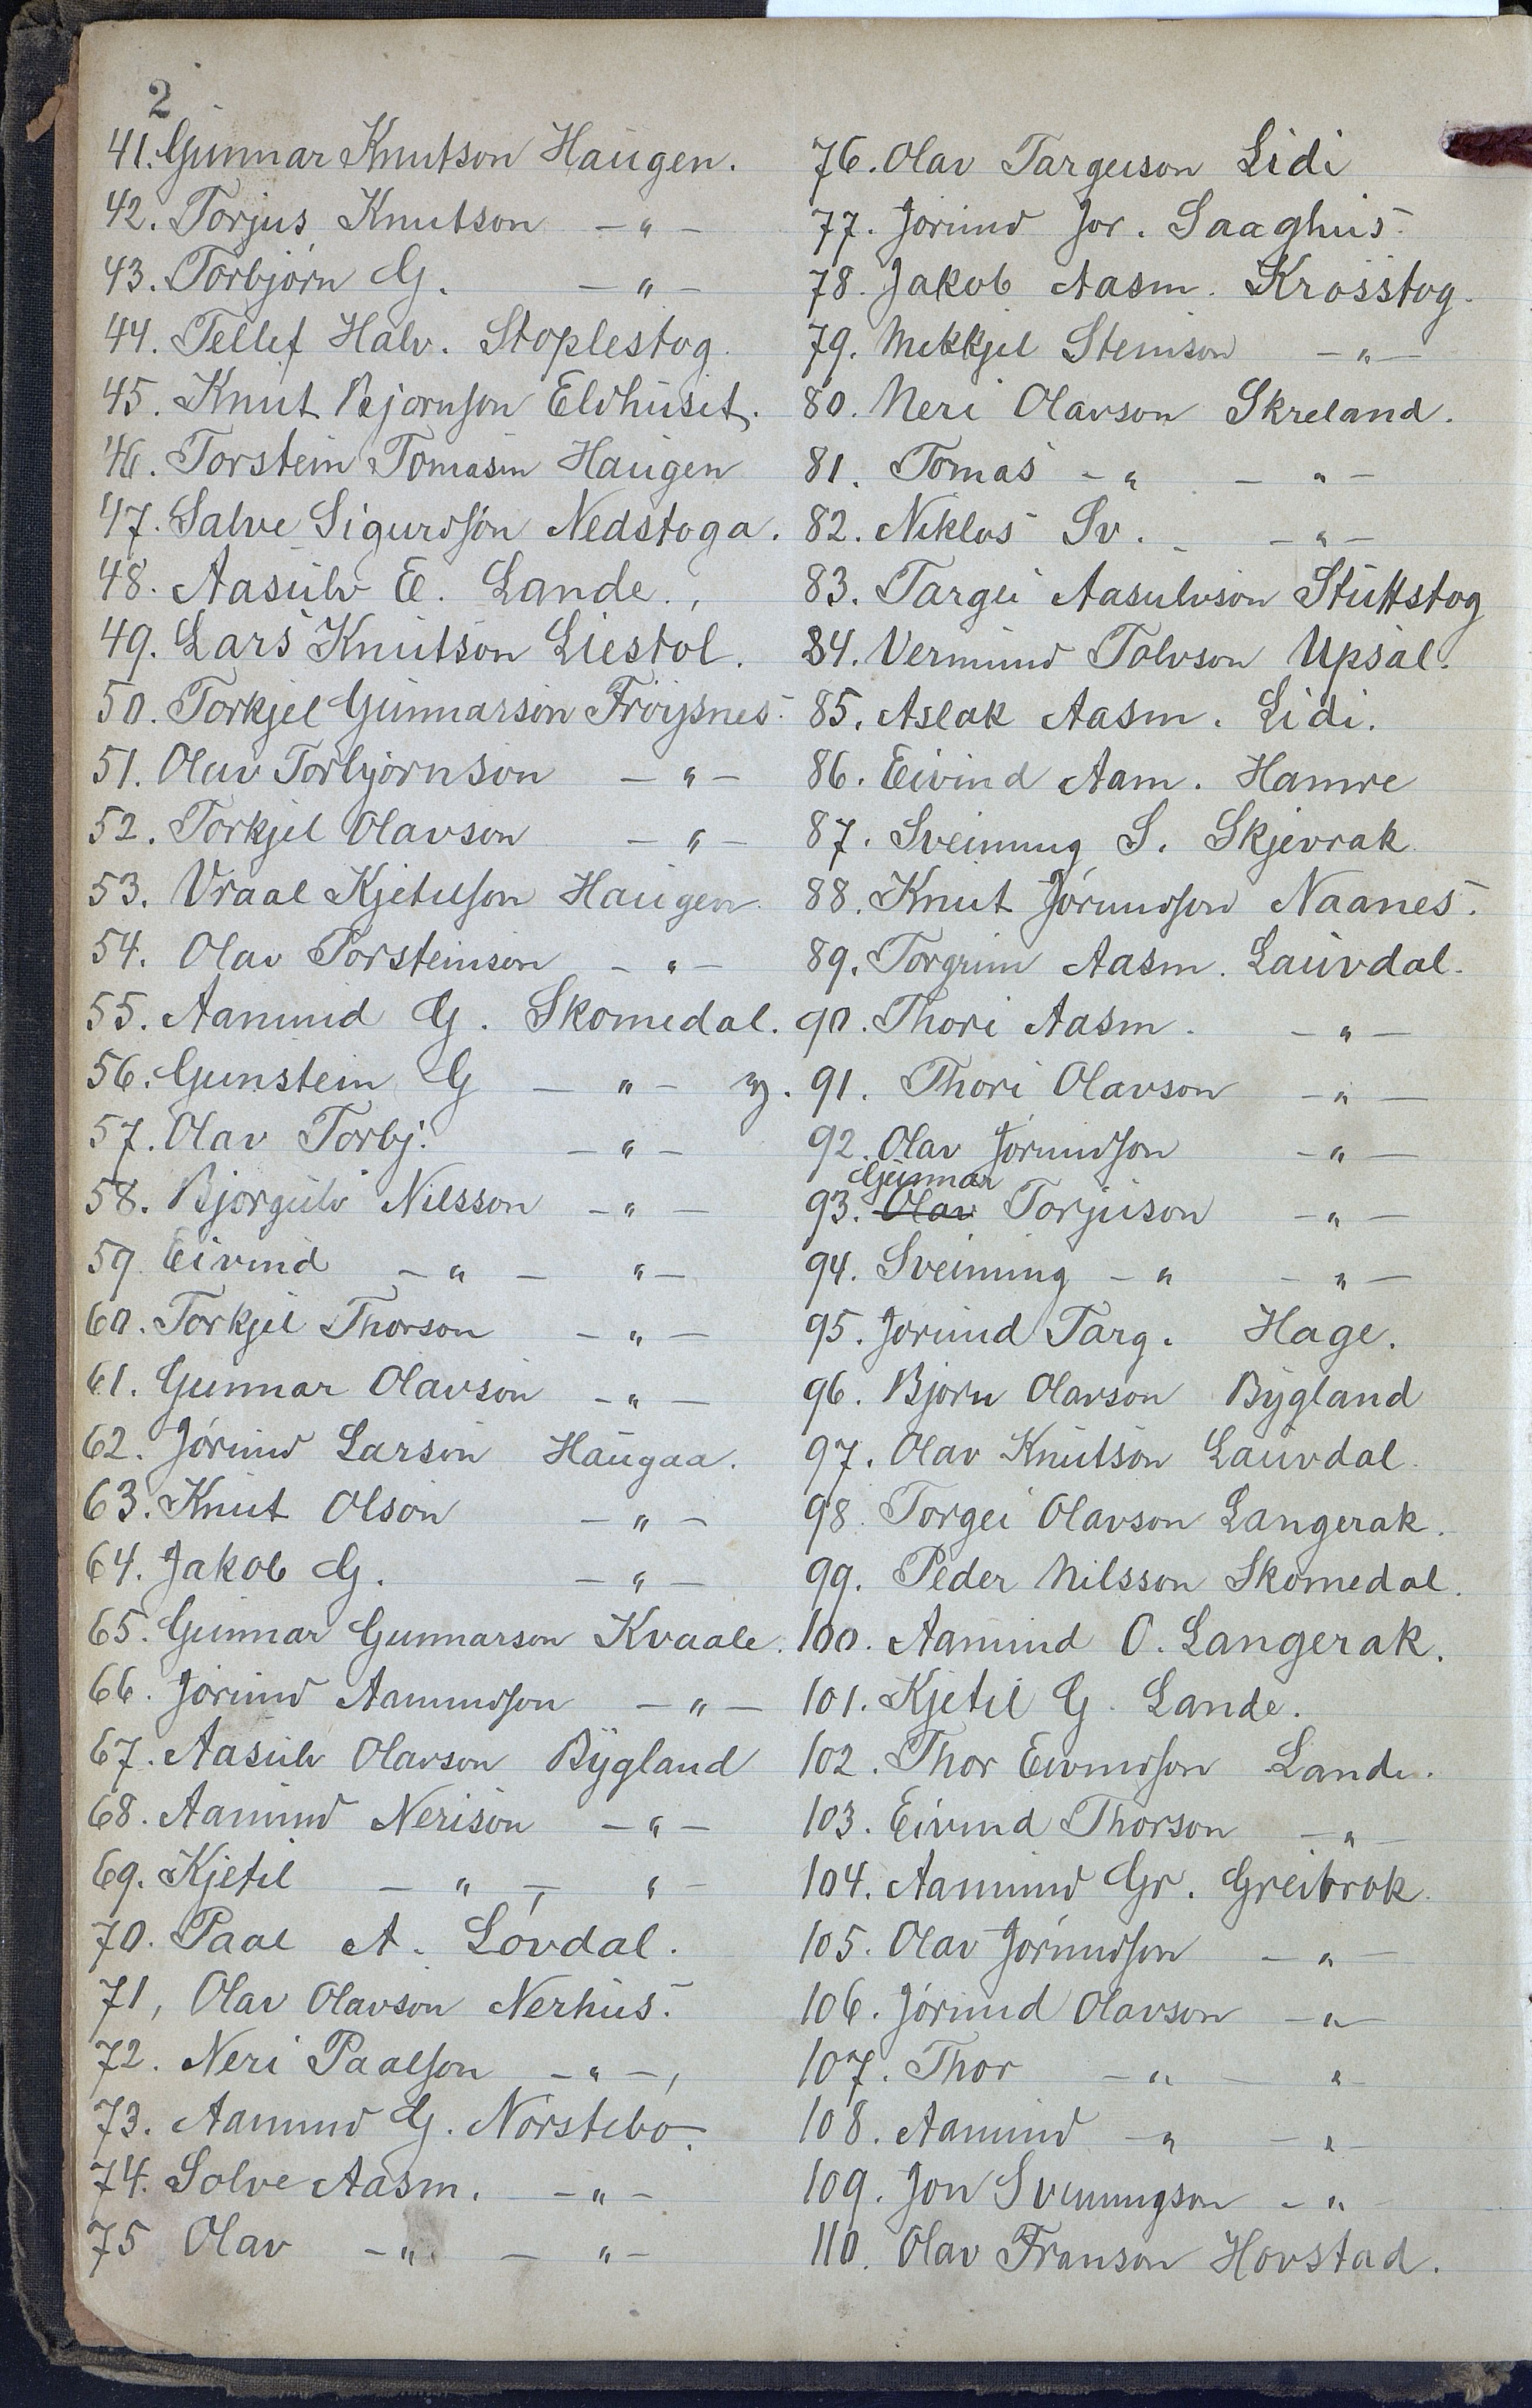 2
41. Gunnar Knutson Haugen.
42. Torjus Knutson - " -
43. Torbjörn G. - " -
44. Tellef Halv. Stoplestog.
45. Knut Bjornson Eldhuset.
46. Torstein Tomassn Haugen
47. Salve Sigurdson Nedstoga.
48. Aasulv E. Lande.,
49. Lars Knutson Liestol.
50. Torkjel Gunnarson Fröysnes.
51. Olav Torbjornson - " -
52. Torkjel Olavson - " -
53. Vraal Kjetilson Haugen.
54. Olav Torsteinson - " -
55. Aamund G. Skomedal.
56. Gunstein G - " - y.
57. Olav Torbj. - " -
58. Bjorgulv Nilsson - " -
59 Eivind - " - " -
60. Torkjel Thorson - " -
61. Gunnar Olavson - " -
62. Jörund Larson Haugaa.
63. Knut Olson - " -
64. Jakob G. - " -
65. Gunnar Gunnarson Kvaale.
66. Jörund Aamundson - " -
67. Aasulv Olavson Bygland
68. Aamund Nerison - " -
69. Kjetil - " - " -
70. Paal A. Lövdal.
71, Olav Olavson Nerhus.
72. Neri Paalson - " -,
73. Aamund G. Norstebo.
74. Solve Aasm. - " -
75 Olav - " - " -
76. Olav Targeison Lidi
77. Jörund Jor. Saaghus.
78. Jakob Aasm. Krosstog.
79. Mekkjel Steinson - " -
80. Neri Olavson Skreland.
81. Tomas - " - " -
82. Niklos Sv. - - " -
83. Targei Aasulvson Stuttstog
84. Vermund Tolvson Upsal.
85. Aslak Aasm. Lidi.
86. Eivind Aam. Hamre
87. Sveinung S. Skjevrak.
88. Knut Jörundson Naanes.
89. Torgrim Aasm. Lauvdal.
90. Thori Aasm. - " -
91. Thori Olavson - " -
92. Olav Jörundson - " -
Gunnar
93. Olav Torjuson - " -
94. Sveinung - " - " -
95. Jorund Targ. Hage.
96. Bjorn Olavson Bygland
97. Olav Knutson Lauvdal.
98. Torgei Olavson Langerak.
99. Peder Nilsson Skomedal.
100. Aamund O. Langerak.
101. Kjetil G. Lande.
102. Thor Eivindson Lande.
103. Eivind Thorson - " -
104. Aamund Gr. Greibrok.
105. Olav Jörundson - " -
106. Jörund Olavson - " -
107. Thor - " - " -
108. Aamund - " - " -
109. Jon Sveinungson - " -
110. Olav Franson Hovstad.